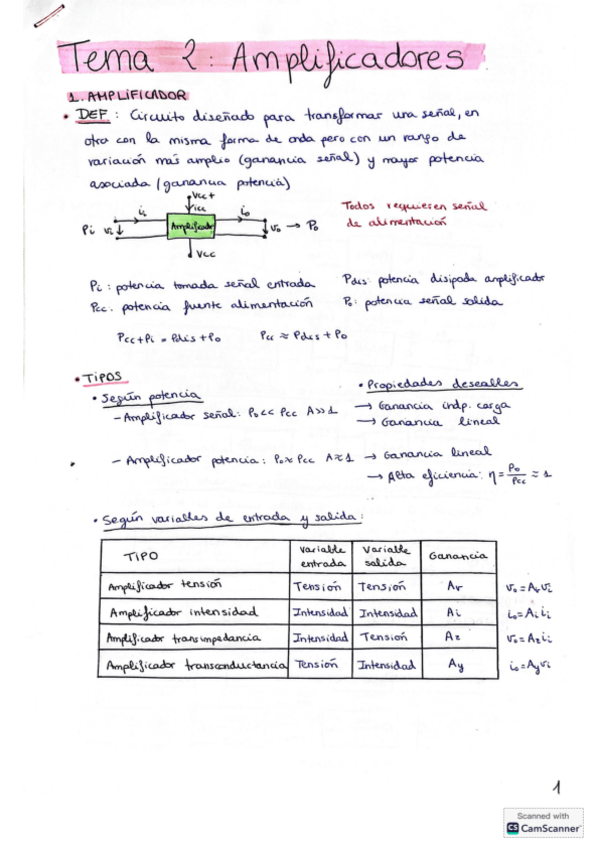 Tema 2: Amplificadores
1. AMPLIFICADOR
• DEF: Circuito diseñado para transformar una señal, en
otra con la misma forma de onda pero con un rango de
variación más amplio (ganancia señal) y mayor potencia
asociada (ganancia potencia)
Vcc+
icc
ii
io
Pi vi
Amplificador
vo → Po
Vcc
Todos requieren señal
de alimentación
Pi: potencia tomada señal entrada
Pdis: potencia disipada amplificador
Pcc: potencia fuente alimentación
Po: potencia señal salida
Pcc+Pi = Pdis+Po
Pcc ≈ Pdis+Po
• TIPOS
• Según potencia
• Propiedades deseables
- Amplificador señal: Po<< Pcc A>>1
→ Ganancia indp. carga
→ Ganancia lineal
- Amplificador potencia: Po≈Pcc A≈1
→ Ganancia lineal
→ Alta eficiencia: η = Po/Pcc ≈ 1
• Según variables de entrada y salida:
TIPO | Variable entrada | Variable salida | Ganancia
Amplificador tensión | Tensión | Tensión | Av vo=Avvi
Amplificador intensidad | Intensidad | Intensidad | Ai io=Aiii
Amplificador transimpedancia | Intensidad | Tensión | Az vo=Azii
Amplificador transconductancia | Tensión | Intensidad | Ay io=Ayvi
1
Scanned with
CS CamScanner